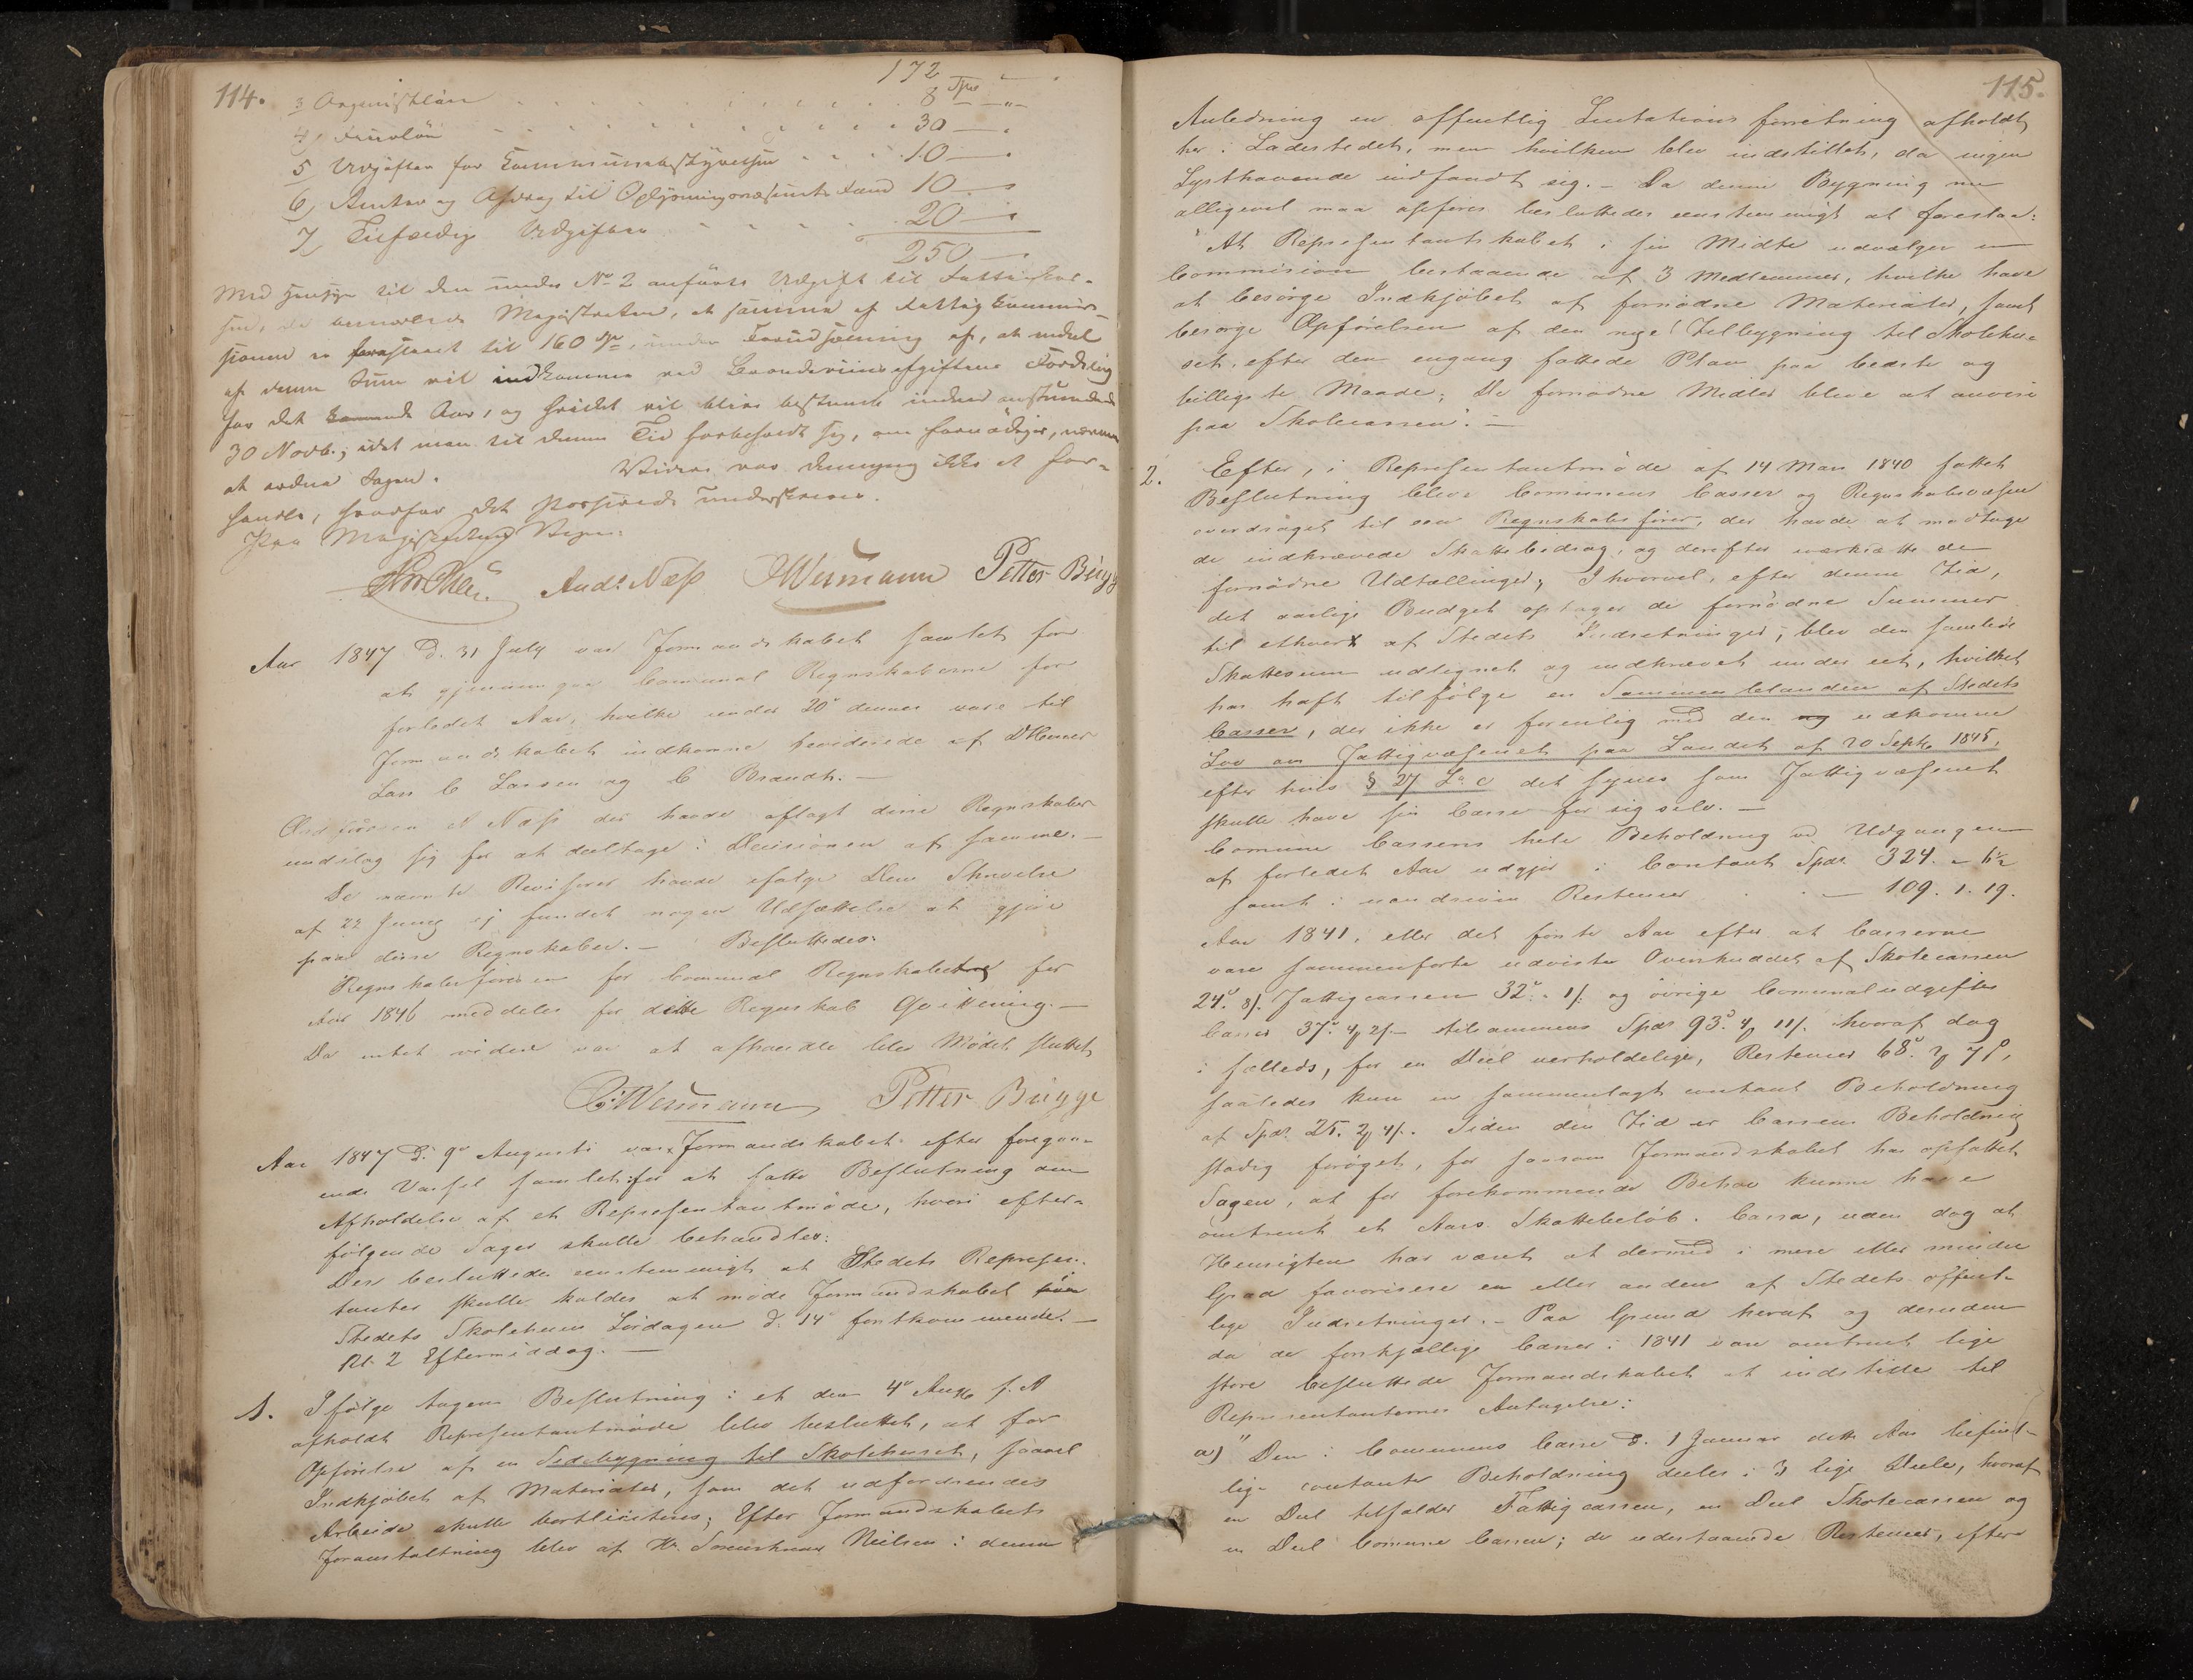 114.
172
3 Organistløn 8 Spd -"-
4, 30 — "
5 Udgifter for Kommunebestyrelsen 10 — "
6, Renter og Afdrag til Oplysningsvæsenets Fond 10 — "
7, Tilfældige Udgifter 20 — "
250 —
Med Hensyn til den under No 2 anførte Udgift til Fattigkas-
sen, da bemærkede Magistraten, at samme af Fattigkommis-
sionen er foreslaaet til 160 Spd, under Forudsætning af, at endeel
af denne Sum vil indkomme ved Brændeviinsafgiftens Fordeling
for det kommende Aar, og hvilket vil blive bestemt inden anstundende
30 Novb.; idet man til denne Tid forbeholdt sig, om fornødiges, nærmere
at ordne Sagen.
Videre var dennegang ikke at for-
handle, hvorfor det passerede underskreves.
Paa Magistratens Vegne:
Ands Næss Wermann Petter Bügge
Aar 1847 d. 31 July var Formandskabet samlet for
at gjennemgaae Communal Regnskaberne for
forledet Aar, hvilke under 20de dennes vare til
Formandskabet indkomne reviderede af DHerrer
Lars C Larsen og C Brandt. —
Ordføreren A Næss der havde aflagt disse Regnskaber
undslog sig for at deeltage i Decisionen af samme. —
De nævnte Revisorer havde ifølge Deres Skrivelse
af 22 Juny ej fundet nogen Udsættelse at gjøre
paa disse Regnskaber. — Besluttedes:
Regnskabsføreren for Communal Regnskabet for
Aar 1846 meddeles for dette Regnskab Qvittering. —
Da intet videre var at afhandle blev Mødet sluttet
C. Wermann Petter Bügge
Aar 1847 d. 9de Augusti var Formandskabet efter foregaa-
ende Varsel samlet for at fatte Beslutning om
Afholdelse af et Repræsentantmøde, hvori efter-
følgende Sager skulle behandles:
Der besluttedes eenstemmigt at Stedets Repræsen-
tanter skulle kaldes at møde Formandskabet paa
Stedets Skolehuus Lørdagen d. 14de førstkommende. —
Kl. 2 Eftermiddag. —
1. Ifølge tagen Beslutning i et den 4de Aug. f. A
afholdt Repræsentantmøde blev besluttet, at for
Opførelse af en Sidebygning til Skolehuset, saavel
Indkjøbet af Materialier, som det udfordrendes
Arbeide skulle bortliciteres; Efter Formandskabets
Foranstaltning blev af Hr. Sorenskriver Nielsen i denne
115.
Anledning en offentlig Licitations forretning afholdt
her i Ladestedet, men hvilken blev indstillet, da ingen
Lysthavende indfandt sig. — Da denne Bygning nu
alligevel maa opføres besluttedes eenstemmigt at foreslaa:
"At Repræsentantskabet i sin Midte udvælger en
Commision bestaaende af 3 Medlemmer, hvilke have
at besørge Indkjøbet af fornødne Materialier, samt
besørge Opførelsen af den nye Tilbygning til Skolehu-
set, efter den engang fattede Plan paa bedste og
billigste Maade; De fornødne Midler bleve at anvise
paa Skolecassen". —
2. Efter, i Repræsentantmøde af 14 Mars 1840 fattet
Beslutning bleve Comunens Casser og Regnskabsvæsen
overdraget til een Regnskabsfører, der havde at modtage
de indkrævede Skattebidrag, og derefter iværksætte de
fornødne Udtællinger; Ihvorvel, efter denne Tid,
det aarlige Budget optager de fornødne Summer
til ethvert af Stedets Indretninger, blev den samlede
Skattesum udlignet og indkrævet under eet, hvilket
har haft tilfølge en Sammenblanden af Stedets
Casser, der ikke er forenlig med den udkomne
Lov om Fattigvæsenet paa Landet af 20 Septbr 1845,
efter hvis § 27 La c det synes som Fattigvæsenet
skulle have sin Casse for sig selv. —
Comune Cassens hele Beholdning ved Udgangen
af forledet Aar udgjør i Contant Spd. 324. " 6½
samt i uinddrevne Restancer — 109. 1. 19.
Aar 1841, eller det første Aar efter at Casserne
vare sammenførte udviste Overskuddet af Skolecassen
24. 8/. Fattigcassen 32. " 1/. og øvrige Comunaludgifters
Casser 37. 4 2/ — tilsammens Spdr 93. 4 11/. hvoraf dog
i fælleds, for en Deel uerholdelige, Restancer 68. 2 7,
saaledes kun en sammenlagt contant Beholdning
af Spdr. 25. 2 4/. Siden den Tid er Cassens Beholdning
stadig forøget, for saasom Formandskabet har opfattet
Sagen, at for forekommende Behov kunne have
omtrent et Aars Skattebeløb i Cassa, uden dog at
Hensigten har været at dermed i mere eller mindre
Grad favorisere en eller anden af Stedets offent-
lige Indretninger. — Paa Grund heraf og desuden
da de forskjællige Casser i 1841 vare omtrent lige
store besluttede Formandskabet at indstille til
Repræsentanternes Antagelse:
a) "Den i Comunens Casse d. 1 Januar dette Aar befind-
lige contante Beholdning deeles i 3 lige Deele, hvoraf
en Deel tilfalder Fattigcassen, en Deel Skolecassen og
en Deel Comune Cassen; de udestaaende Restancer, efter